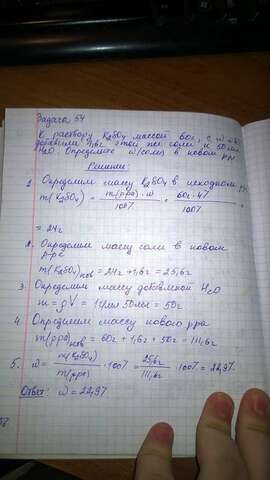 Задача 54
К раствору K₂SO₄ массой 60г, с w = 4%
добавили 1,6г этой же соли и 50 мл
H₂O. Определите w(соли) в новом р-ре
Решение:
1. Определим массу K₂SO₄ в исходном
m(K₂SO₄) = m(р-ра) · w / 100% = 60г · 4% / 100% =
= 24г
2. Определим массу соли в новом
р-ре
m(K₂SO₄)нов = 24г + 1,6г = 25,6г
3. Определим массу добавленной H₂O
m = ρV = 1г/мл · 50мл = 50г
4. Определим массу нового р-ра
m(р-ра)нов = 60г + 1,6г + 50г = 111,6г
5. w = m(K₂SO₄) / m(р-ра) · 100% = 25,6г / 111,6г · 100% = 22,9%
Ответ: w = 22,9%